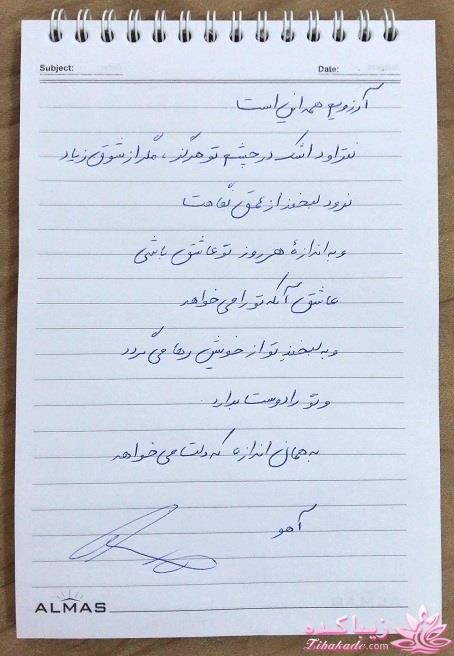 Subject:
Date:
آرزویم همه این است
نتراود اشک در چشم تو هرگز، مگر از شوق زیاد
نرود لبخند از عمق نگاهت
و به اندازهٔ هر روز تو عاشق باشی
عاشق آنکه تو را می خواهد
و به لبخند تو از خویش رها می گردد
و تو را دوست بدارد
به همان اندازه که دلت می خواهد
آهو
ALMAS
زیباکده
Zibakade.com